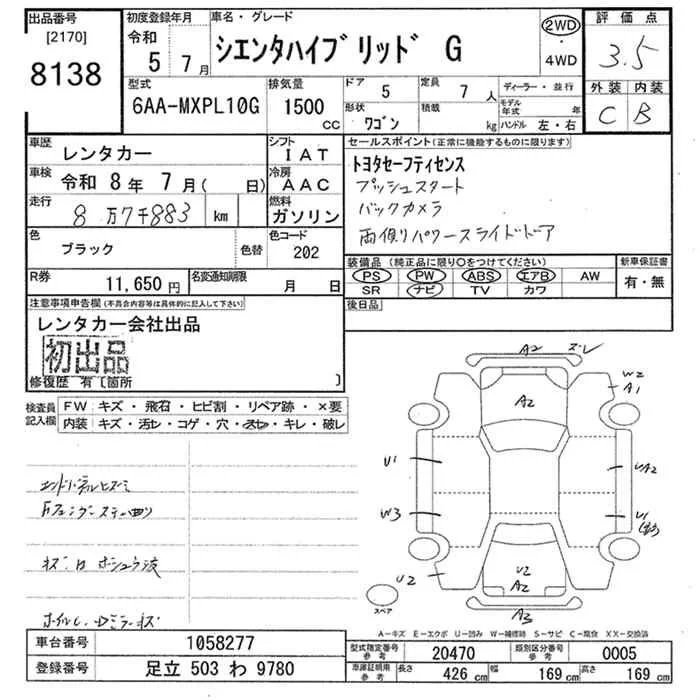 出品番号
[2170]
8138
初度登録年月
令和 5年 7月
車名・グレード
シエンタハイブリッド G
2WD
・
4WD
評価点
3.5
外装 内装
C B
型式
6AA-MXPL10G
排気量
1500 CC
ドア 5
定員 7人
形状 ワゴン
積載 kg
ディーラー・並行
モデル年式 年
ハンドル 左・右
車歴 レンタカー
シフト IAT
車検 令和 8年 7月( 日)
冷房 AAC
走行 8万7千883 km
燃料 ガソリン
色 ブラック
色替
色コード 202
R券 11,650円
名変通知期限 月 日
セールスポイント(正常に機能するものに限ります)
トヨタセーフティセンス
プッシュスタート
バックカメラ
両側パワースライドドア
装備品 (純正品に限り○をつけてください)
PS PW ABS エアB AW
SR ナビ TV カワ
新車保証書
有・無
後日品
注意事項申告欄(不具合内容等は具体的に記入して下さい)
レンタカー会社出品
初出品
修復歴 有〔箇所 〕
検査員記入欄
FW キズ・飛石・ヒビ割・リペア跡・×要
内装 キズ・汚レ・コゲ・穴・スレ・キレ・破レ
A2 ズレ
W2
A1
A2
U1
UA2
W3
U1
U2
U2
A2
A3
スペア
A-キズ E-エクボ U-凹み W-補修跡 S-サビ C-腐食 XX-交換済
車台番号 1058277
登録番号 足立 503 わ 9780
型式指定番号 参考 20470
類別区分番号 参考 0005
車庫証明用 参考 長さ 426 cm 幅 169 cm 高さ 169 cm